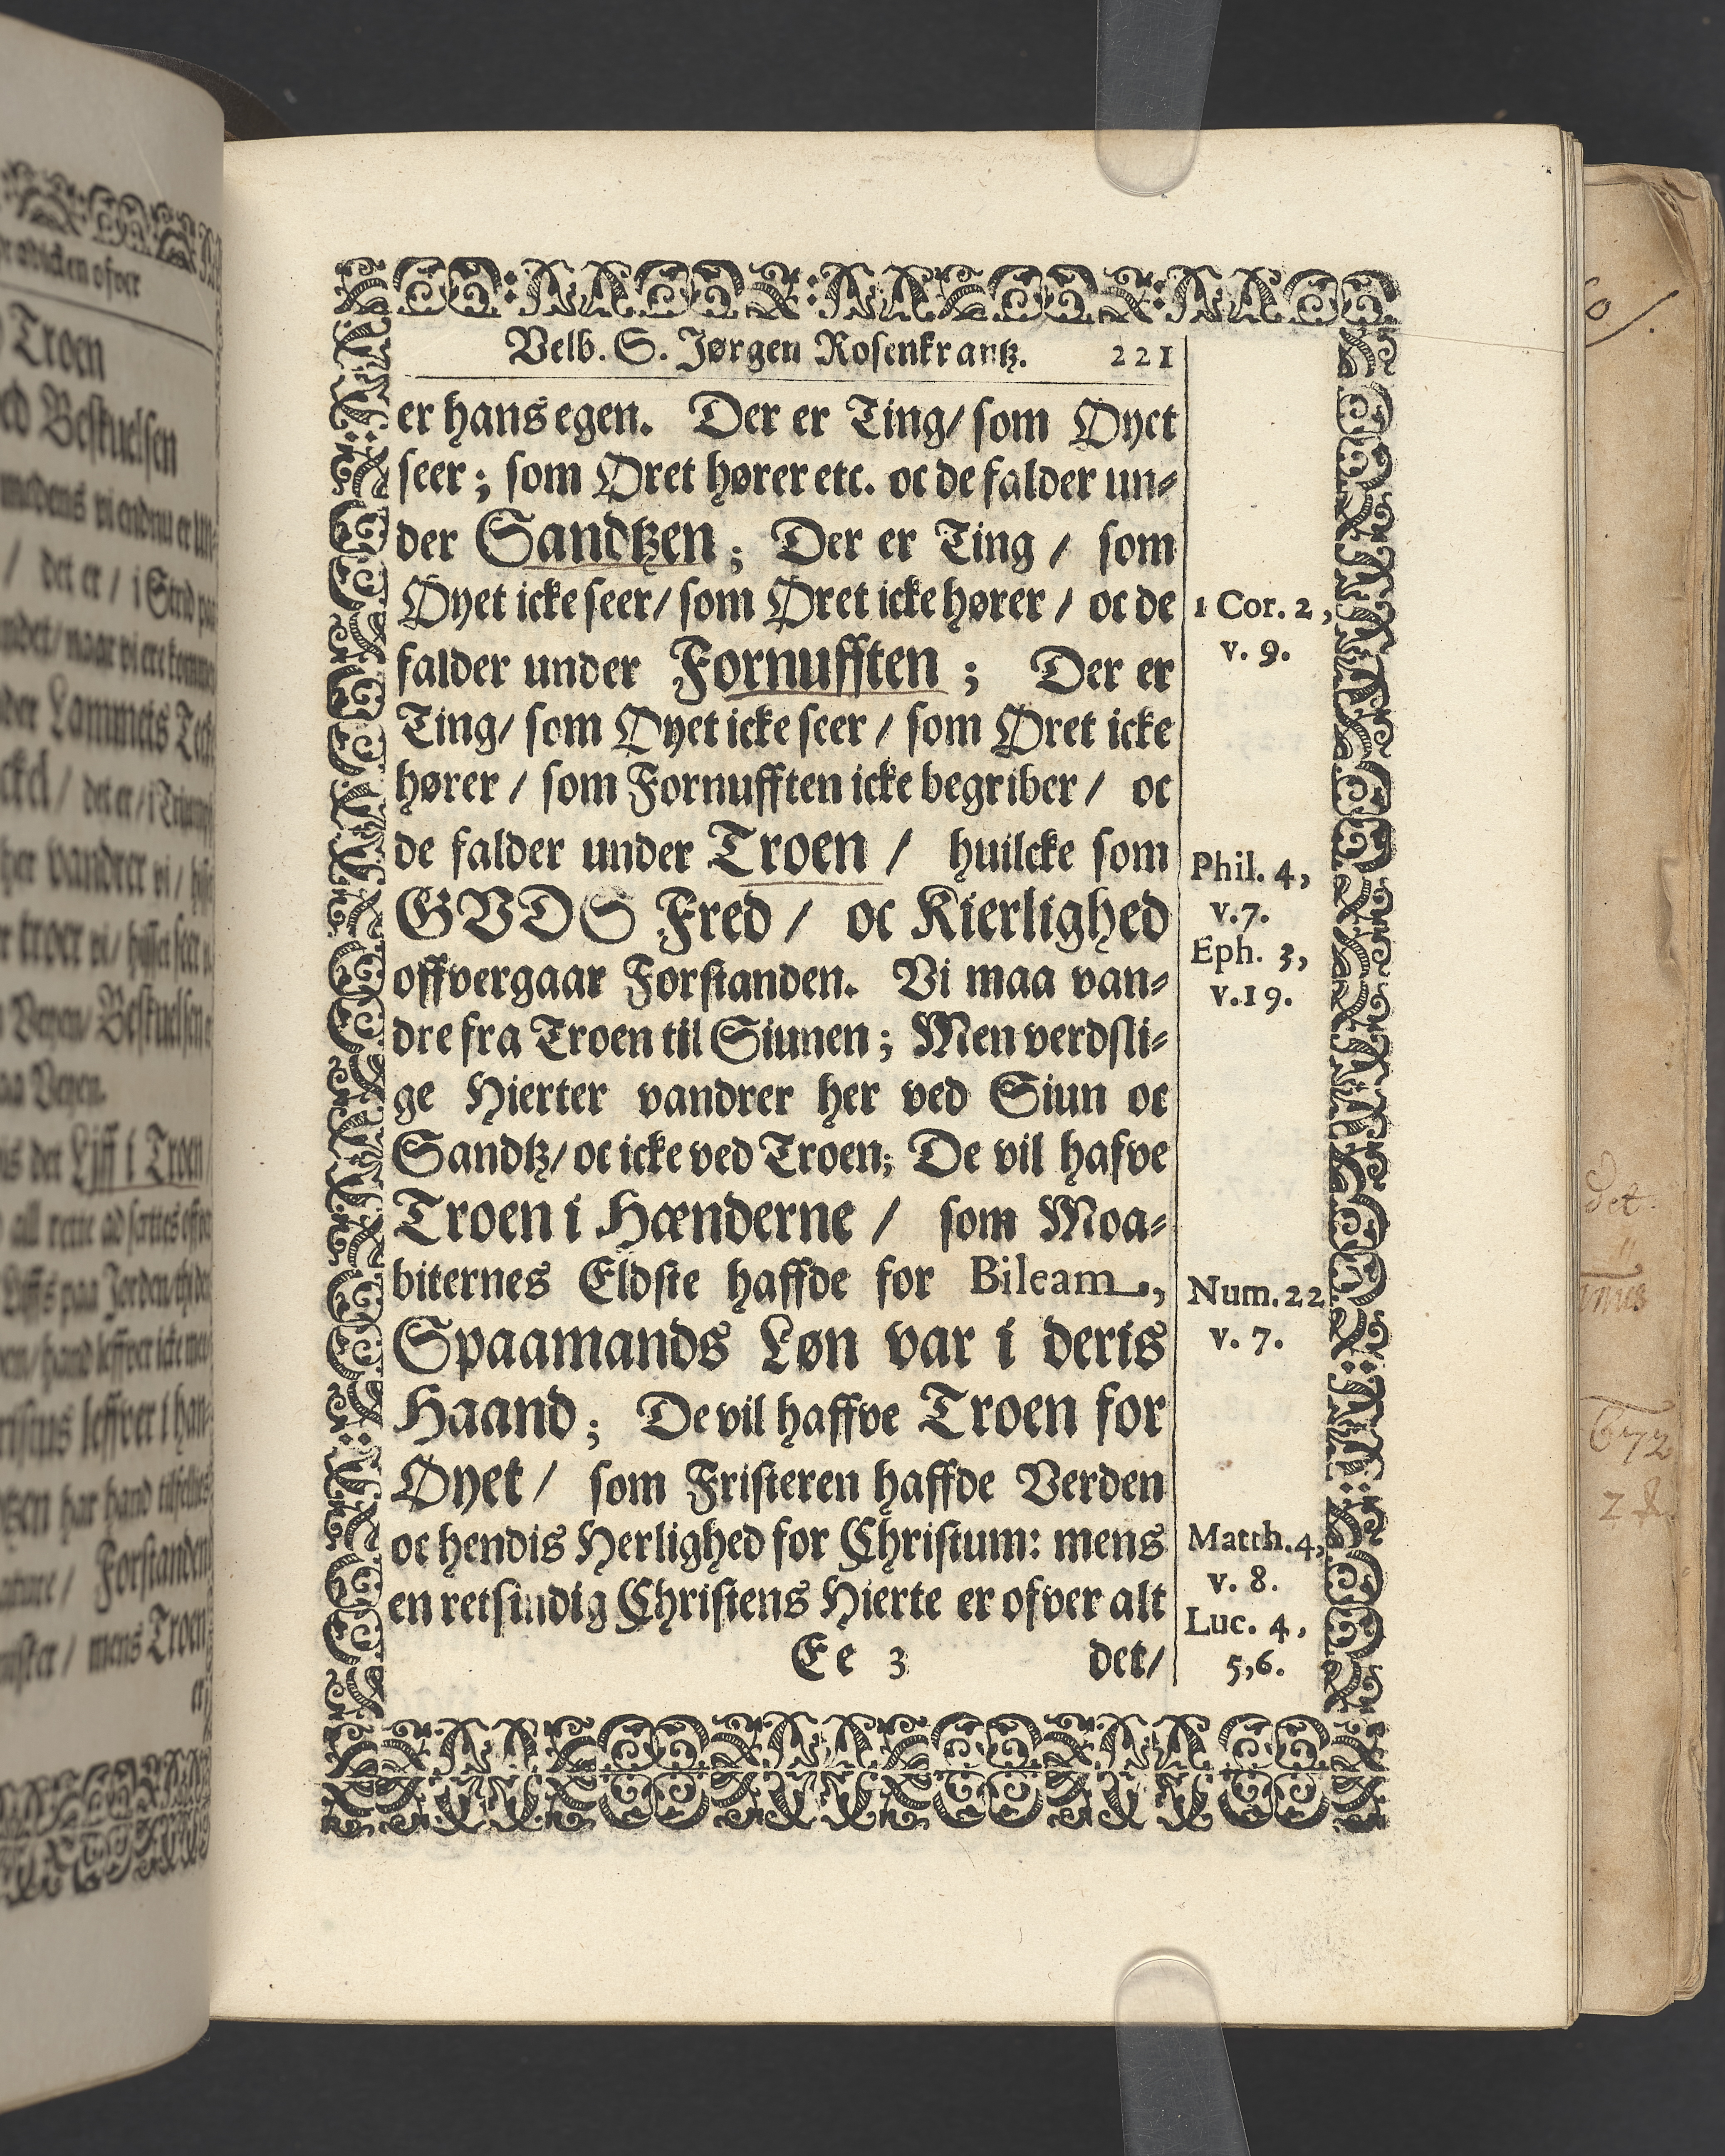 Velb. S. Jørgen Rosenkrantz. 221
er hans egen. Der er Ting/ som Øyet
seer; som Øret hører etc. oc de falder un-
der Sandtzen; Der er Ting / som
Øyet icke seer/ som Øret icke hører / oc de
falder under Fornufften ; Der er
Ting/ som Øyet icke seer / som Øret icke
hører / som Fornufften icke begriber / oc
de falder under Troen / huilcke som
GVDS Fred / oc Kierlighed
offvergaar Forstanden. Vi maa van-
dre fra Troen til Siunen; Men verdsli-
ge Hierter vandrer her ved Siun oc
Sandtz/ oc icke ved Troen; De vil hafve
Troen i Hænderne / som Moa-
biternes Eldste haffde for Bileam,
Spaamands Løn var i deris
Haand; De vil haffve Troen for
Øyet / som Fristeren haffde Verden
oc hendis Herlighed for Christum: mens
en retsindig Christens Hierte er ofver alt
Ee 3 det/
1 Cor. 2,
v. 9.
Phil. 4,
v. 7.
Eph. 3,
v. 19.
Num. 22
v. 7.
Matth. 4,
v. 8.
Luc. 4,
5,6.
Troen
Beskuelsen
vi endnu er
/ det er / i
Lammets
det er / i
her vandrer vi /
troer vi /
Veyen
Liff i Troen
Forstanden
mens Troen
det